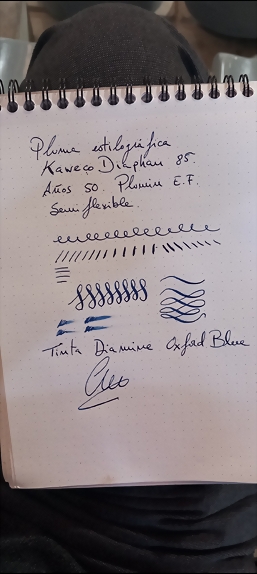 Pluma estilográfica
Kaweco Diaphan 85.
Años 50. Plumin E.F.
Semi flexible.
Tinta Diamine Oxford Blue